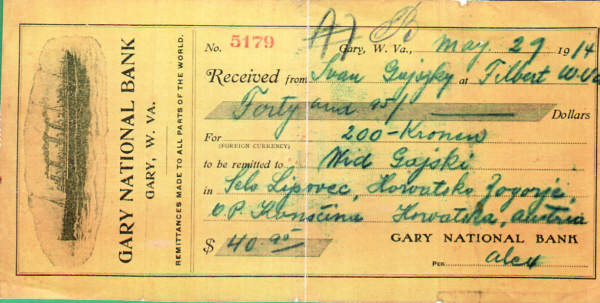 GARY NATIONAL BANK
GARY, W. VA.
REMITTANCES MADE TO ALL PARTS OF THE WORLD.
No. 5179
Gary, W. Va., May 29 1914
Received from Ivan Gajszky at Filbert W. Va
Forty and 95/ Dollars
For 200-Kronen
(FOREIGN CURRENCY)
to be remitted to Wid Gajski
in Selo Lipovec, Horvatsko Zogorje
O.P. Konsčina Horvatska, Austria
$ 40.95
GARY NATIONAL BANK
PER Alex